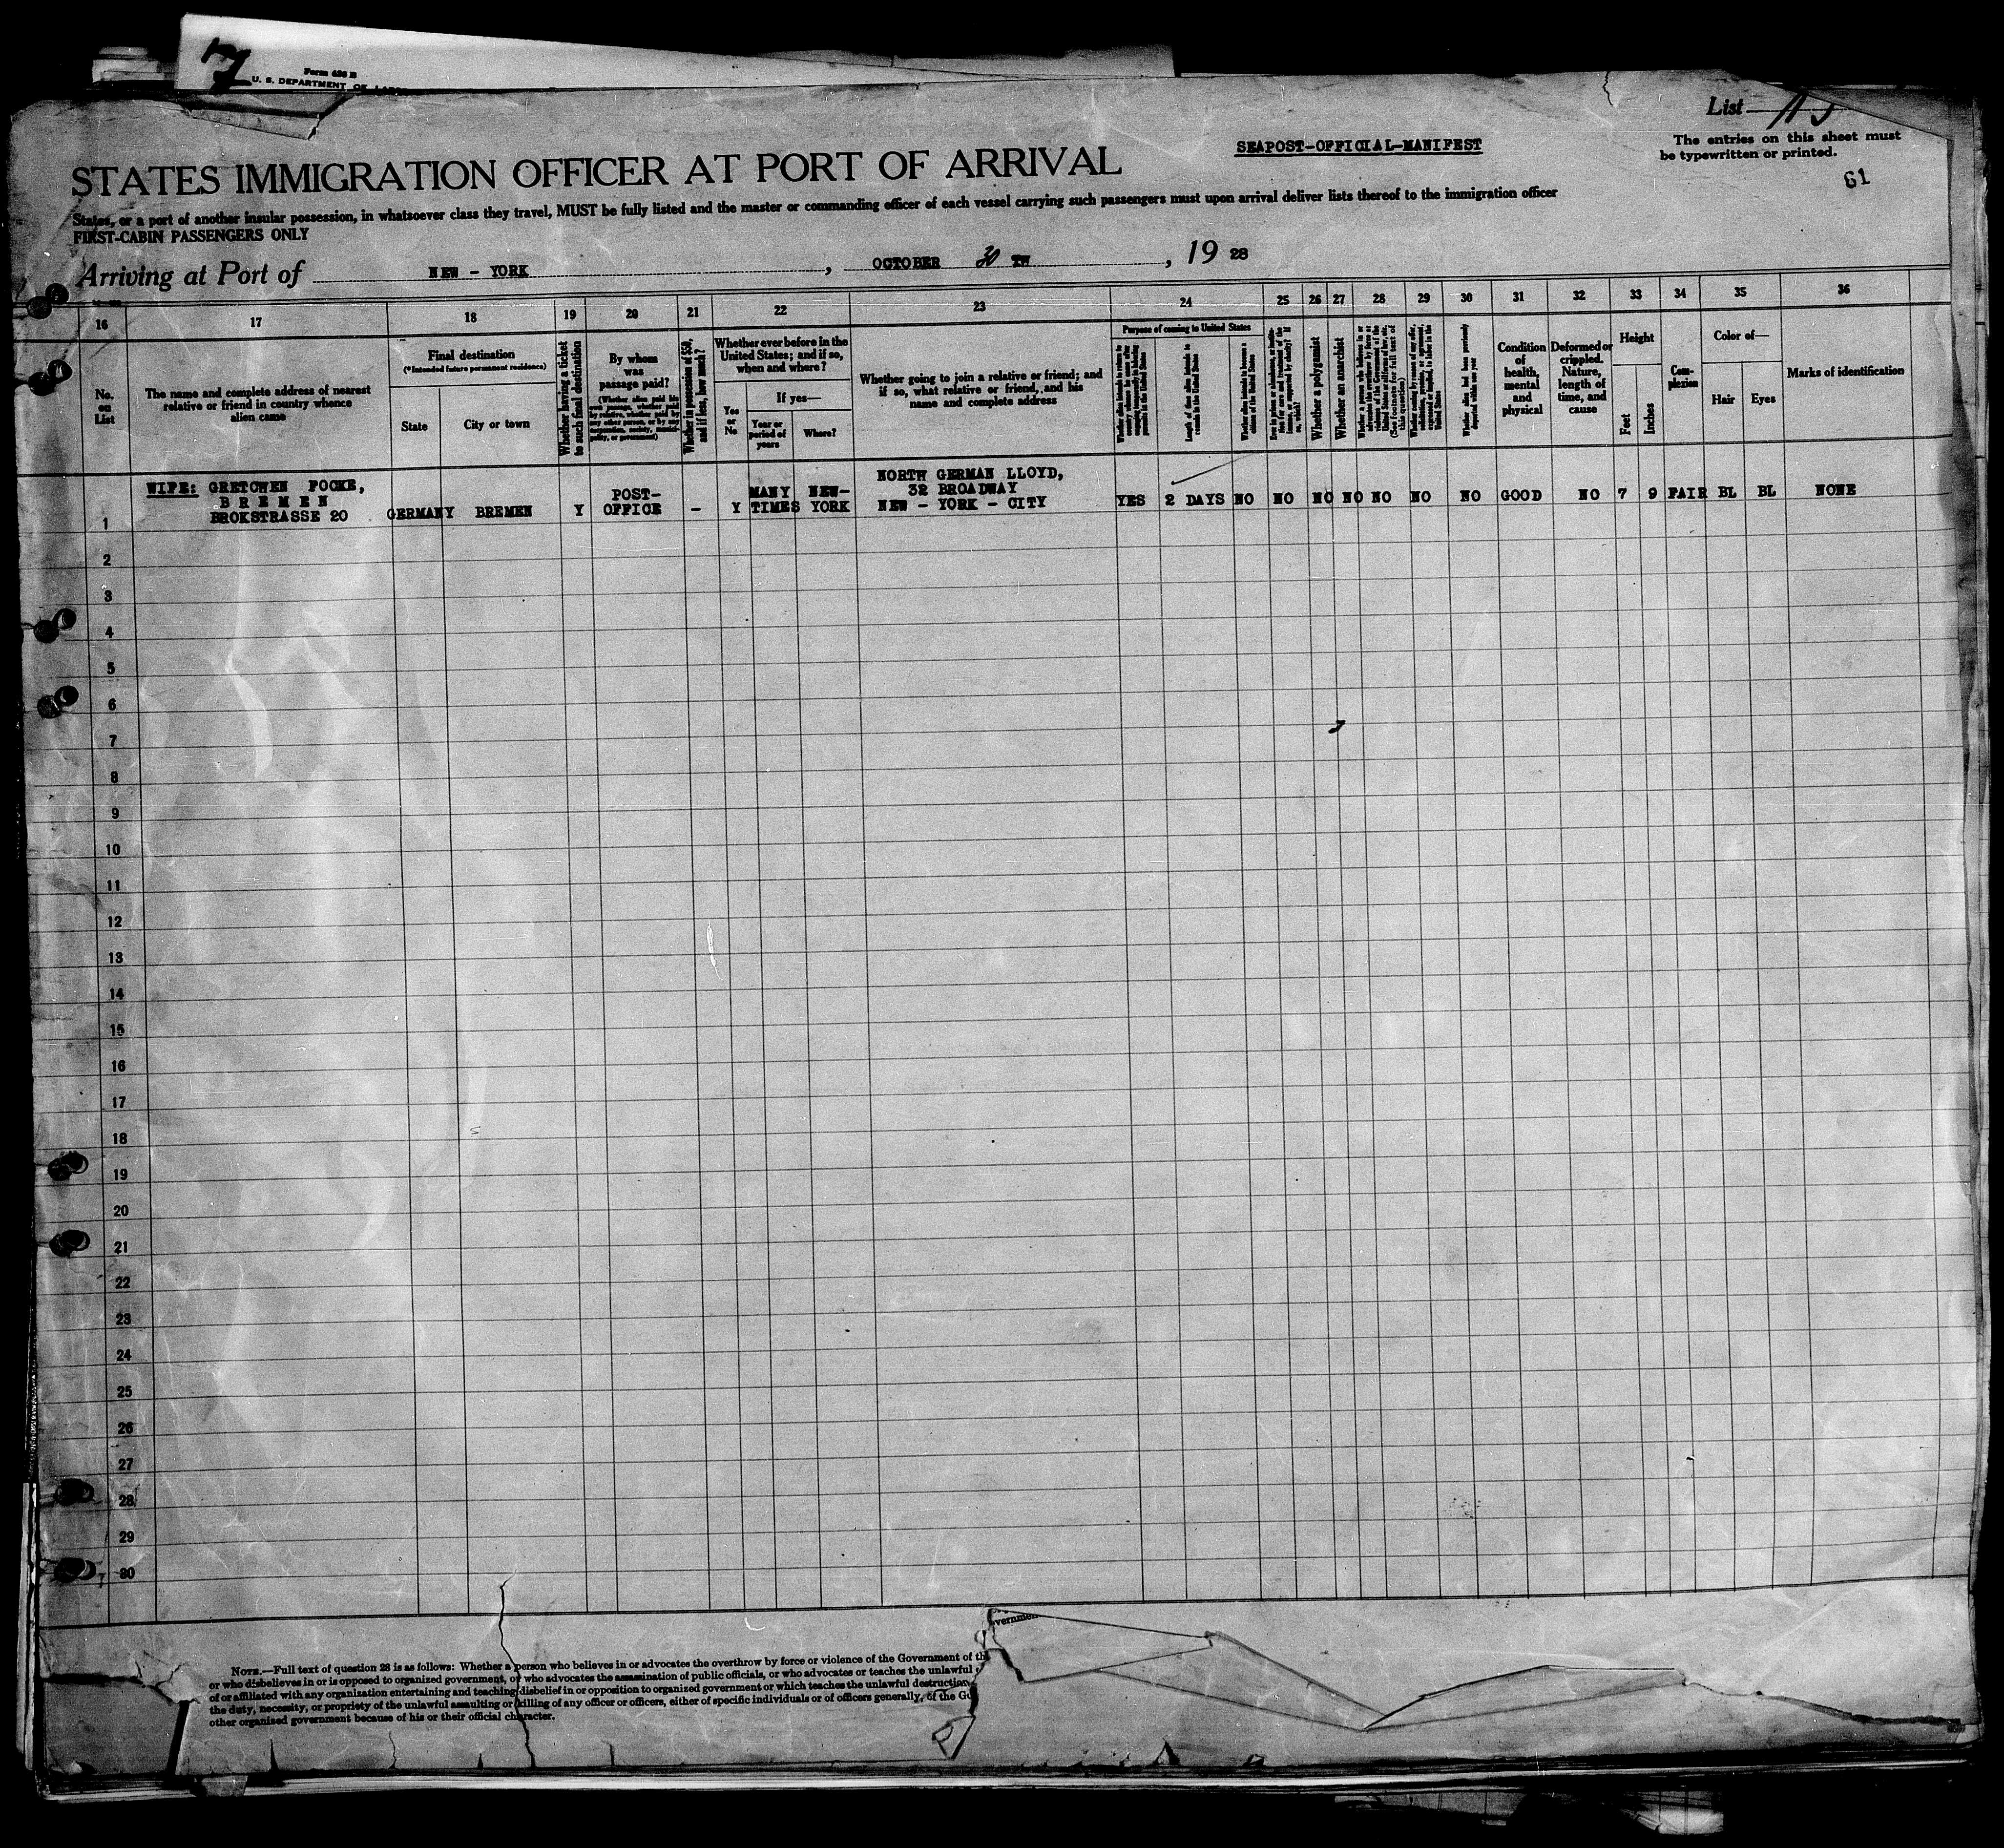 7
Form 630 B
U. S. DEPARTMENT OF
List
The entries on this sheet must
be typewritten or printed.
SEAPOST-OFFICIAL-MANIFEST
61
STATES IMMIGRATION OFFICER AT PORT OF ARRIVAL
States, or a port of another insular possession, in whatsoever class they travel, MUST be fully listed and the master or commanding officer of each vessel carrying such passengers must upon arrival deliver lists thereof to the immigration officer
FIRST-CABIN PASSENGERS ONLY
Arriving at Port of NEW - YORK , OCTOBER 30 TH , 19 28
16 17 18 19 20 21 22 23 24 25 26 27 28 29 30 31 32 33 34 35 36
No.
on
List
The name and complete address of nearest
relative or friend in country whence
alien came
Final destination
(*Intended future permanent residence)
State
City or town
Whether having a ticket
to such final destination
By whom
was
passage paid?
(Whether alien paid his
own passage, whether paid
by relative, whether paid by
any other person, or by any
corporation, society, munici-
pality, or government)
Whether in possession of $50,
and if less, how much?
Whether ever before in the
United States; and if so,
when and where?
Yes
or
No
If yes—
Year or
period of
years
Where?
Whether going to join a relative or friend; and
if so, what relative or friend, and his
name and complete address
Purpose of coming to United States
Length of time alien intends to
remain in the United States
Whether alien intends to become a
citizen of the United States
Whether a polygamist
Whether an anarchist
Whether alien had been previously
deported within one year
Condition
of
health,
mental
and
physical
Deformed or
crippled.
Nature,
length of
time, and
cause
Height
Feet
Inches
Com-
plexion
Color of—
Hair
Eyes
Marks of identification
WIFE: GRETCHEN FOCKE,
BREMEN
BROKSTRASSE 20
1 GERMANY BREMEN Y POST-
OFFICE - Y MANY
TIMES NEW-
YORK NORTH GERMAN LLOYD,
32 BROADWAY
NEW - YORK - CITY YES 2 DAYS NO NO NO NO NO NO NO GOOD NO 7 9 FAIR BL BL NONE
2
3
4
5
6
7
8
9
10
11
12
13
14
15
16
17
18
19
20
21
22
23
24
25
26
27
28
29
30
vernmen
NOTE.—Full text of question 28 is as follows: Whether a person who believes in or advocates the overthrow by force or violence of the Government of th
or who disbelieves in or is opposed to organized government, or who advocates the assassination of public officials, or who advocates or teaches the unlawful
of or affiliated with any organization entertaining and teaching disbelief in or opposition to organized government or which teaches the unlawful destruction
the duty, necessity, or propriety of the unlawful assaulting or killing of any officer or officers, either of specific individuals or of officers generally, of the Go
other organized government because of his or their official character.